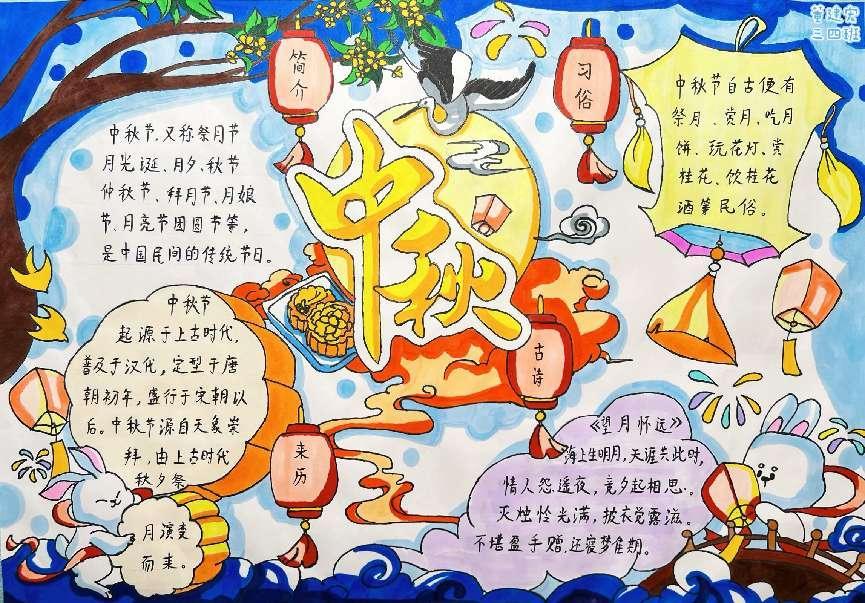 简介
中秋节,又称祭月节
月光诞、月夕、秋节
仲秋节、拜月节、月娘
节、月亮节团圆节等,
是中国民间的传统节日。
中秋
习俗
中秋节自古便有
祭月、赏月、吃月
饼、玩花灯、赏
桂花、饮桂花
酒等民俗。
三四班
中秋节
起源于上古时代,
普及于汉代,定型于唐
朝初年,盛行于宋朝以
后。中秋节源自天象崇
拜,由上古时代
秋夕祭
月演变
而来。
来历
古诗
《望月怀远》
海上生明月,天涯共此时,
情人怨遥夜,竟夕起相思。
灭烛怜光满,披衣觉露滋。
不堪盈手赠,还寝梦佳期。